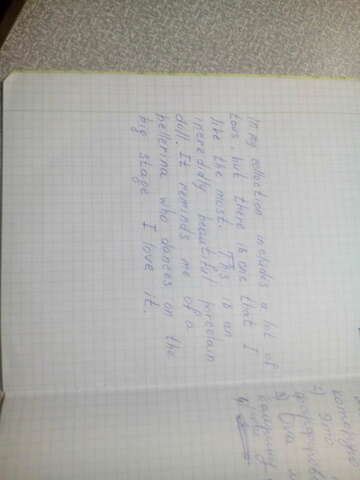 In my collection includs a lot of
toys, but there is one that I
like the most. This is an
incredidly beautiful porcelain
doll. It reminds me of a
bellerina who dances on the
big stage. I love it.